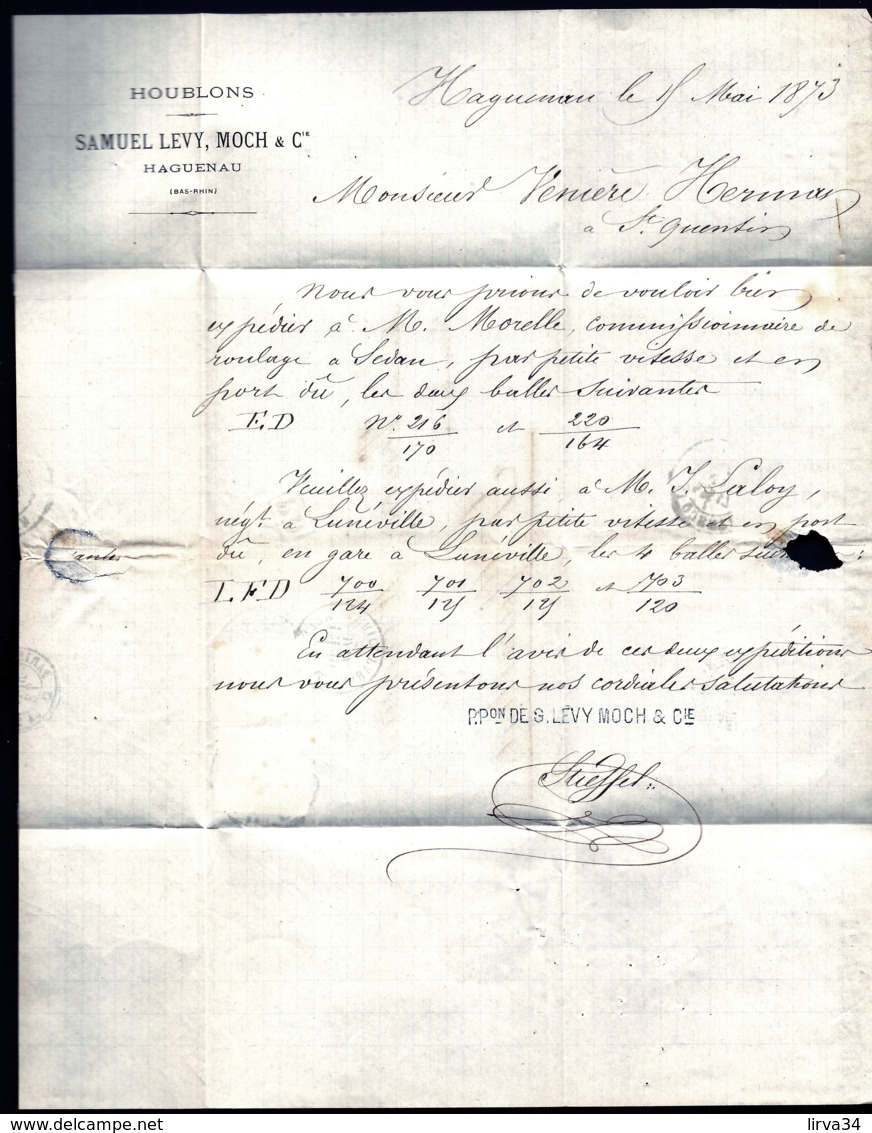 HOUBLONS
SAMUEL LEVY, MOCH & CIE
HAGUENAU
(BAS-RHIN)
Haguenau le 15 Mai 1873
Monsieur Venière Herman
à St. Quentin
Nous vous prions de vouloir bien
expédier à M. Morelle, commissionnaire de
roulage à Sedan, par petite vitesse et en
port dû, les deux balles suivantes
E.D No. 216/170 et 220/164
Veuillez expédier aussi à M. J. Laloy,
négt. à Lunéville, par petite vitesse et en port
dû, en gare à Lunéville, les 4 balles :
L.F.D 700/124 701/125 702/125 et 703/120
En attendant l'avis de ces deux expéditions
nous vous présentons nos cordiales salutations
P.PON DE S. LÉVY MOCH & CIE
Stieffel
delcampe.net
lirva34